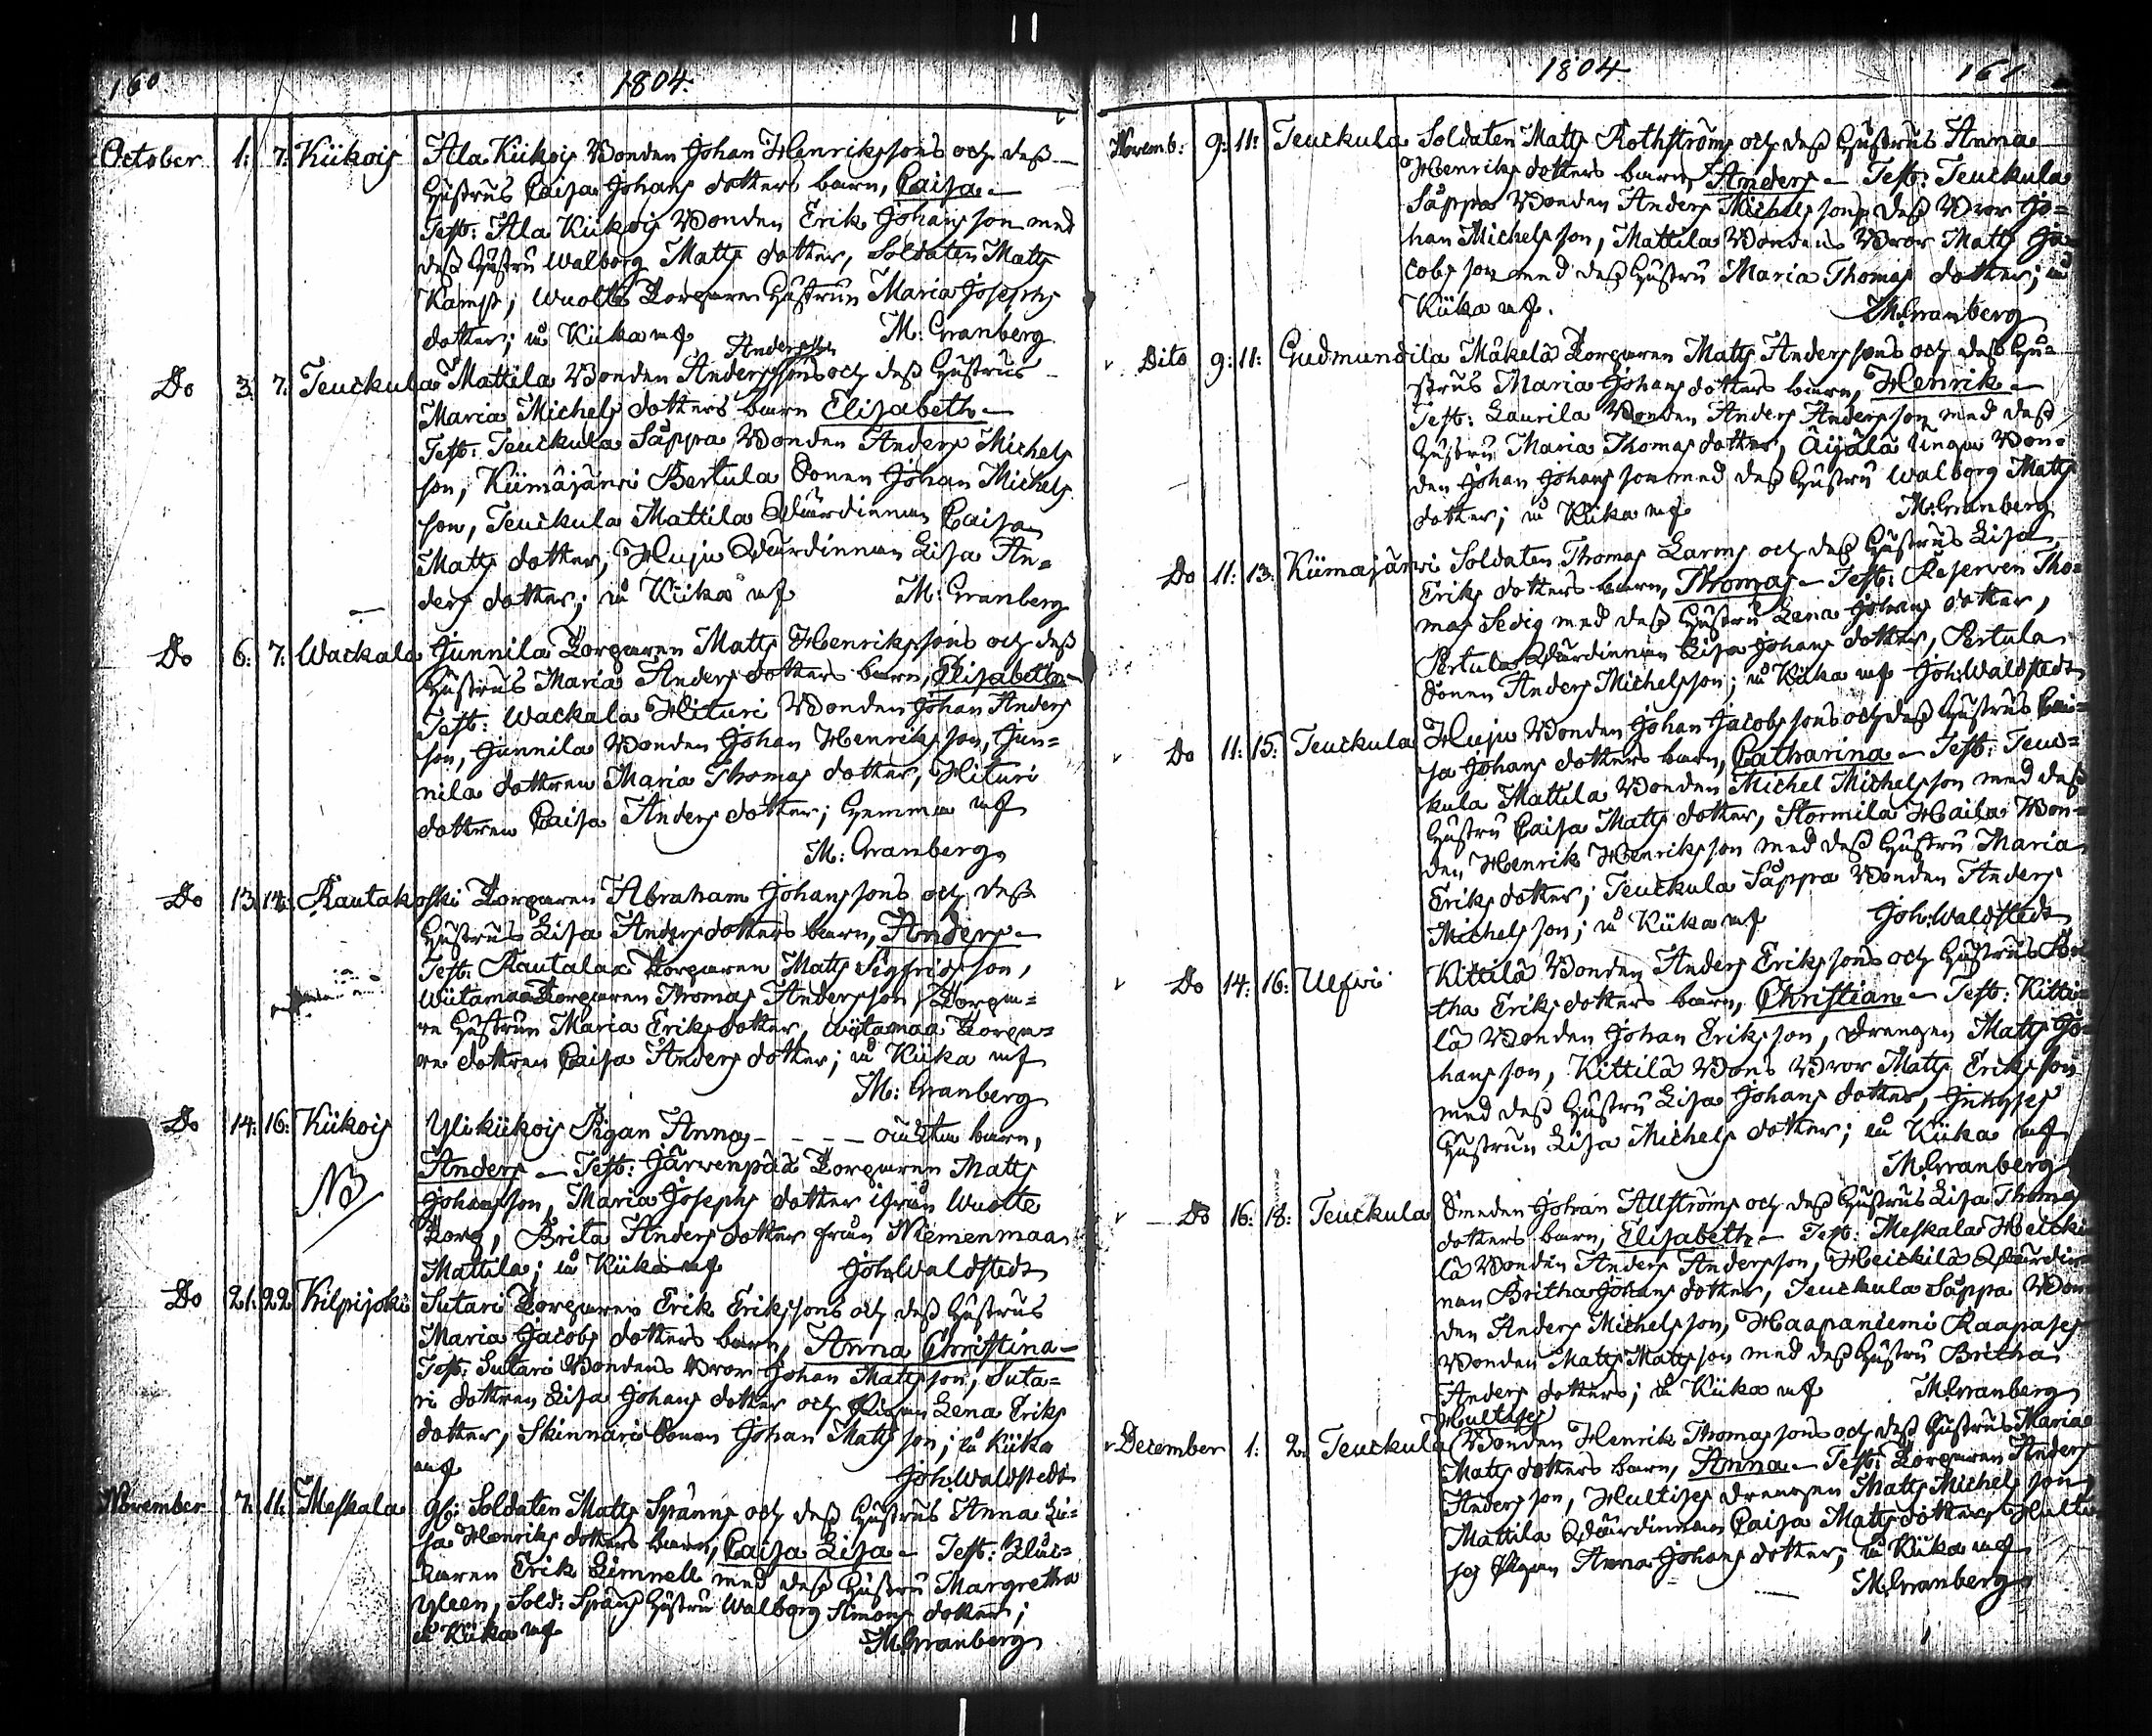 160
1804.
October 1: 7: Kiikois Ala Kiikois Bonden Johan Henrikssons och dess
Hustrus Caisa Johans dotters barn, Caisa
Test: Ala Kiikois Bonden Erik Johansson med
dess Hustru Walborg Matts dotter, Soldaten Matts
Kamp, Wuolle Torpare Hustrun Maria Josephs
dotter; uti Kiika af M: Granberg
Andersson
Do 3: 7: Teuckula Mattila Bonden Anderssons och dess Hustrus
Maria Michels dotters barn Elisabeth
Test: Teuckula Säppä Bonden Anders Michels
son, Kiimäjärvi Bertula Sonen Johan Michels
son, Teuckula Mattila Wärdinnan Caisa
Matts dotter, Huju Wärdinnan Lisa An=
ders dotter; uti Kiika af M: Granberg
Do 6: 7: Wackala Junnila Torparen Matts Henrikssons och dess
Hustrus Maria Anders dotters barn, Elisabeth
Test: Wackala Hituri Bonden Johan Anders
son, Junnila Bonden Johan Henriksson, Jun=
nila dottren Maria Thomas dotter, Hituri
dottren Caisa Anders dotter; hemma af
M: Granberg
Do 13: 14: Rautakoski Torparen Abraham Johanssons och dess
Hustrus Lisa Anders dotters barn, Anders
Test: Rautalax Torparen Matts Sigfridsson,
Wiitamaa Torparen Thomas Andersson, Torpa=
re Hustrun Maria Eriks dotter, Wiitamaa Torpa=
re dottren Caisa Anders dotter; uti Kiika af
M: Granberg
Do 14: 16: Kiikois Ylikiikois Pigan Annas oächta barn,
Anders Test: Järvenpää Torparen Matts
NB Johansson, Maria Josephs dotter ifrån Wuolle
Torp, Brita Anders dotter från Niemenmaa
Mattila; uti Kiika af Joh: Waldstedt
Do 21: 22 Kilpijoki Sutari Torparen Erik Erikssons och dess Hustrus
Maria Jacobs dotters barn, Anna Christina
Test: Sutari Bondens Bror Johan Mattsson, Suta=
ri dottren Lisa Johans dotter och Pigan Lena Eriks
dotter, Skinnari Sonen Johan Matts son; uti Kiika
af Joh: Waldstedt
November 7: 11: Meskala Soldaten Matts Spänns och dess Hustrus Anna Li=
sa Henriks dotters barn, Caisa Lisa Test:
karen Erik Limnell med dess Hustru Margretha
Yleen, Sold: Späns Hustru Walborg Simons dotter;
uti Kiika af M: Granberg
1804
161
Novemb: 9: 11: Teuckula Soldaten Matts Rothströms och dess Hustrus Anna
Henriks dotters barn Anders Test: Teuckula
Säppä Bonden Anders Michelsson, dess Bror Jo=
han Michelsson, Mattila Bondens Bror Matts Ja=
cobs son med dess Hustru Maria Thomas dotter; uti
Kiika af. M: Granberg
Dito 9: 11: Gudmundila Mäkelä Torparen Matts Anderssons och dess Hu=
strus Maria Johans dotters barn, Henrik
Test: Laurila Bonden Anders Andersson med dess
Hustru Maria Thomas dotter, Äijälä Unga Bon=
den Johan Johansson med dess Hustru Walborg Matts
dotter; uti Kiika af M: Granberg
Do 11: 13: Kiimajärvi Soldaten Thomas Larms och dess Hustrus Lisa
Eriks dotters barn, Thomas Test: Reserven Tho=
mas Sedig med dess Hustru Lena Johans dotter,
Pertula Wärdinnan Lisa Johans dotter, Pertula
Sonen Anders Michelsson; uti Kiika af Joh: Waldstedt
Do 11: 15: Teuckula Huju Bonden Johan Jacobssons och dess Hustrus Cai=
sa Johans dotters barn, Catharina Test: Teuc=
kula Mattila Bonden Michel Michelsson med dess
Hustru Caisa Matts dotter, Stormila Haila Bon=
den Henrik Henriksson med dess Hustru Maria
Eriks dotter; Teuckula Säppä Bonden Anders
Michelsson; uti Kiika af Joh: Waldstedt
Do 14: 16: Ulfvi Kittilä Bonden Anders Erikssons och Hustrus
tha Eriks dotters barn, Christian Test: Kitti=
lä Bonden Johan Eriksson, Drengen Matts Jo=
hansson, Kittilä Bons Bror Matts Eriksson
med dess Hustru Lisa Johans dotter,
Hustrun Lisa Michels dotter; uti Kiika af
M: Granberg
Do 16: 18: Teuckula Smeden Johan Allströms och dess Hustrus Lisa Thomas
dotters barn, Elisabeth Test: Meskala Heicki=
lä Bonden Anders Andersson, Heickilä Wärdin=
nan Britha Johans dotter, Teuckula Säppä Bon=
den Anders Michelsson, Haapaniemi Raapases
Bonden Matts Mattsson med dess Hustru Britha
Anders dotter; uti Kiika af M: Granberg
Hultises
December 1: 2: Teuckula Bonden Henrik Thomassons och dess Hustrus Maria
Matts dotters barn, Anna Test: Torparen Anders
Andersson, Hultises Drengen Matts Michelsson,
Mattila Wärdinnan Caisa Matts dotter, Hulti=
ses Pigan Anna Johans dotter; uti Kiika af
M: Granberg